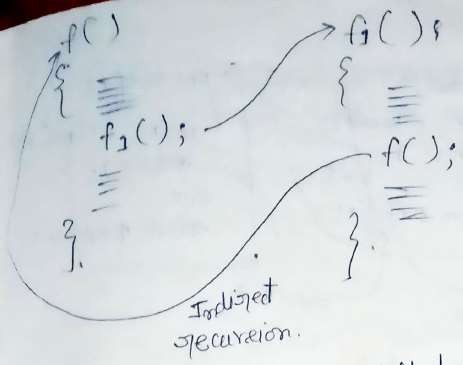 f()
{
f1();
}.
f1();
{
f();
}.
Indirect
recursion.